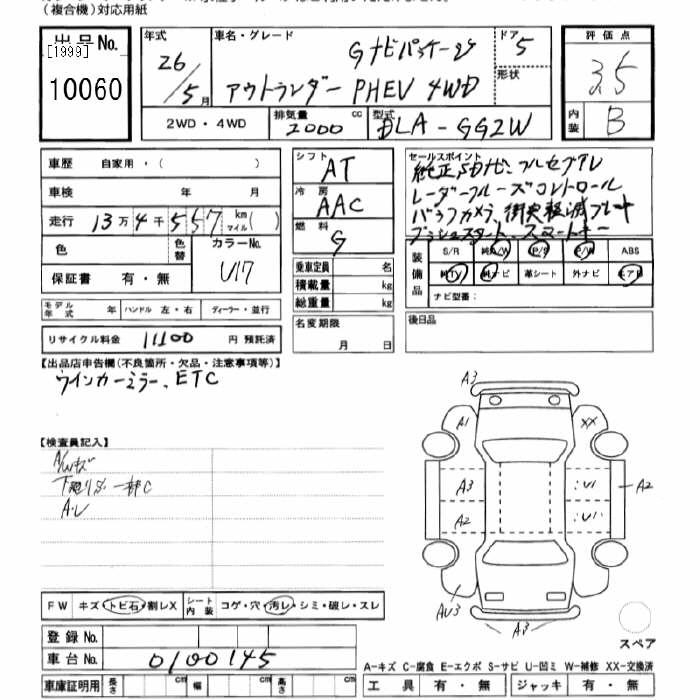 (複合機)対応用紙
出品No.
[1999]
10060
年式
26/5月
車名・グレード
Gナビパッケージ
アウトランダー PHEV 4WD
ドア
5
形状
評価点
3.5
内装
B
2WD・4WD
排気量
2000 cc
型式
DLA-GG2W
車歴 自家用・( )
車検 年 月
走行 13万4千557 km マイル( )
色
色替
カラーNo.
U17
保証書 有・無
モデル年式 年 ハンドル 左・右 ディーラー・並行
リサイクル料金 11100 円 預託済
シフト
AT
冷房
AAC
燃料
G
乗車定員 名
積載量 kg
総重量 kg
名変期限
月 日
セールスポイント
純正SDナビ、フルセグTV
レーダークルーズコントロール
バックカメラ、衝突軽減ブレーキ
プッシュスタート、スマートキー
装備品
S/R 純A/W P/S P/W ABS
純TV 純ナビ 革シート 外ナビ エアB
ナビ型番:
後日品
【出品店申告欄(不良箇所・欠品・注意事項等)】
ウインカーミラー、ETC
【検査員記入】
A/Wキズ
下廻りサビ 一部C
A・U
FW キズ・トビ石・割レX
シート内装 コゲ・穴・汚レ・シミ・破レ・スレ
登録No.
車台No. 0100145
車庫証明用 長さ cm 幅 cm 高さ cm
A3
A1
XX
A3
U1
A2
A2
U1
AU3
A3
スペア
A-キズ C-腐食 E-エクボ S-サビ U-凹ミ W-補修 XX-交換済
工具 有・無 ジャッキ 有・無